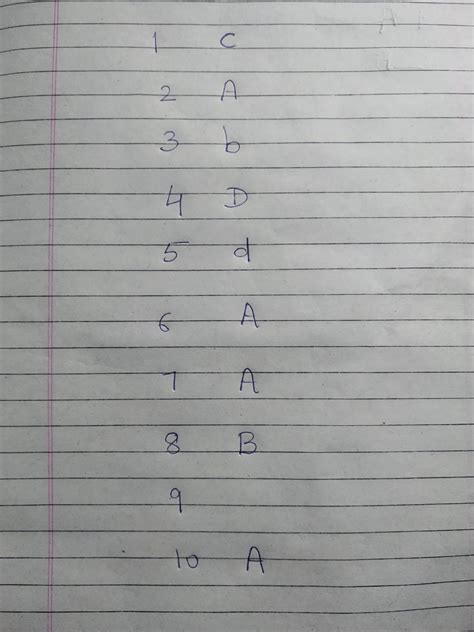 1 C
2 A
3 b
4 D
5 d
6 A
7 A
8 B
9
10 A